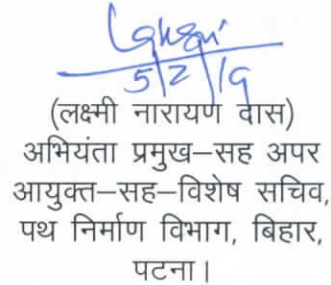 5/2/19
(लक्ष्मी नारायण दास)
अभियंता प्रमुख–सह अपर
आयुक्त–सह–विशेष सचिव,
पथ निर्माण विभाग, बिहार,
पटना।